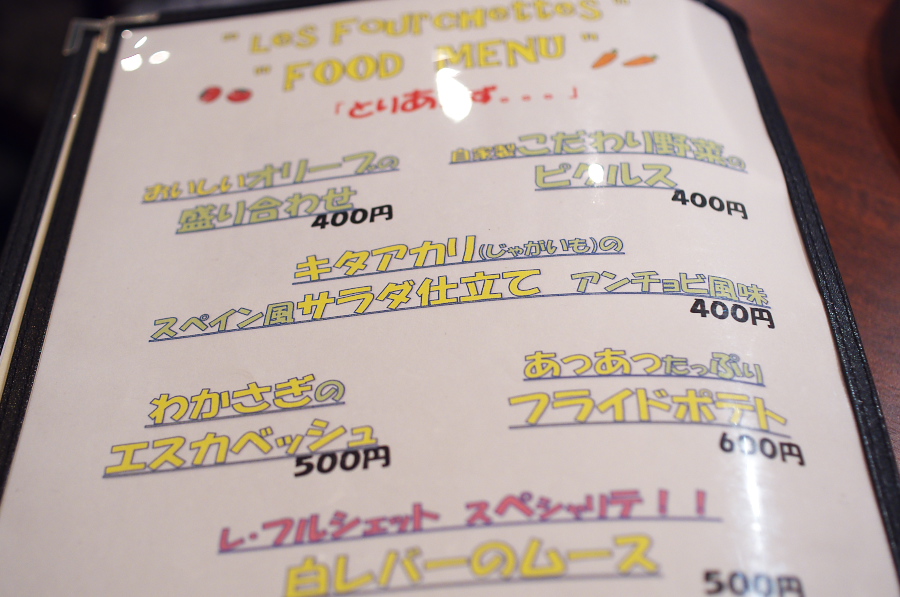 "Les Fourchettes"
"FOOD MENU"
「とりあえず。。。」
おいしいオリーブの
盛り合わせ
400円
自家製こだわり野菜の
ピクルス
400円
キタアカリ(じゃがいも)の
スペイン風サラダ仕立て アンチョビ風味
400円
わかさぎの
エスカベッシュ
500円
あつあつたっぷり
フライドポテト
600円
レ・フルシェット スペシャリテ！！
白レバーのムース
500円